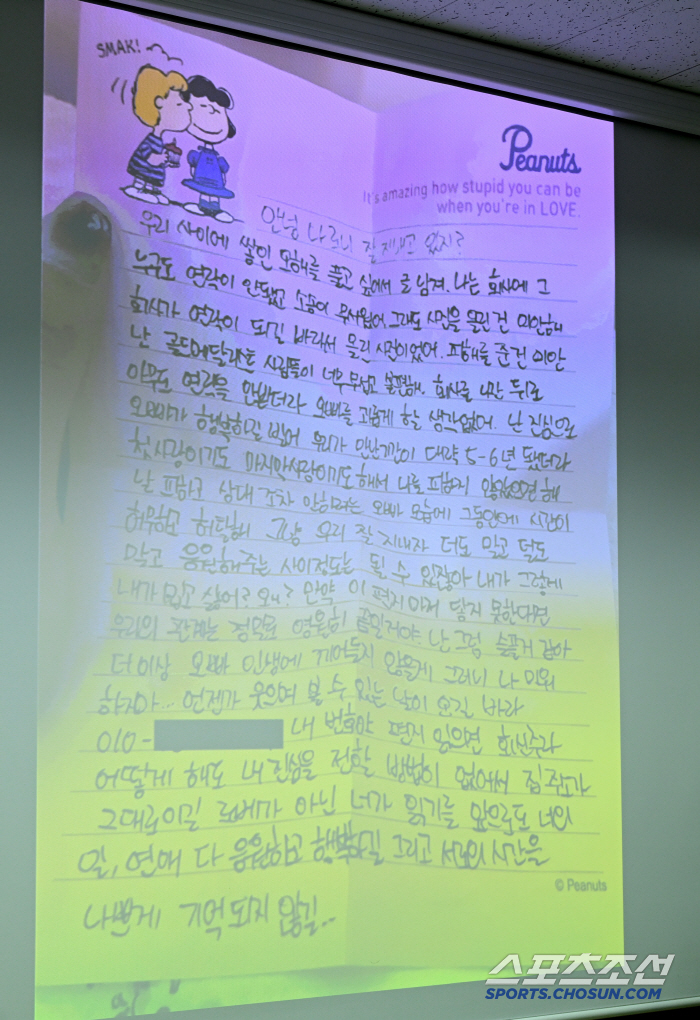 SMAK!
Peanuts
It's amazing how stupid you can be
when you're in LOVE.
안녕 나 잘 지내고 있지?
우리 사이에 쌓인 오해를 풀고 싶어서 글 남겨. 나는 회사에 그
누구도 연락이 안됐고 소송이 무서웠어. 그래도 사진을 올린 건 미안해
회사가 연락이 되길 바라서 올린 사진이었어. 피해를 준건 미안
난 골드메달리스트 사람들이 너무 무섭고 불편해. 회사를 나간 뒤로
아무도 연락을 안받더라 오빠를 괴롭게 할 생각없어. 난 진심으로
오빠가 행복하길 빌어 우리가 만난기간이 대략 5-6년 됐더라
첫사랑이기도 마지막사랑이기도 해서 나를 피하지 않았으면 해
날 피하고 상대 조차 안하려는 오빠 모습에 그동안에 시간이
허무하고 허탈해 그냥 우리 잘 지내자 더도 말고 덜도
말고 응원해주는 사이정도는 될 수 있잖아 내가 그렇게
내가 밉고 싫어? 왜? 만약 이 편지마저 닿지 못한다면
우리의 관계는 정말로 영원히 끝일거야 난 그럼 슬플거 같아
더이상 오빠 인생에 끼어들지 않을게 그러니 나 미워
하지마... 언젠가 웃으며 볼 수 있는 날이 오길 바라
010- 내 번호야 편지 읽으면 회신주라
어떻게 해도 내 진심을 전할 방법이 없어서 집주소가
그대로이길 로베가 아닌 너가 읽기를 앞으로도 너의
일, 연애 다 응원하고 행복하길 그리고 서로의 시간을
나쁘게 기억되지 않길...
© Peanuts
스포츠조선
SPORTS.CHOSUN.COM